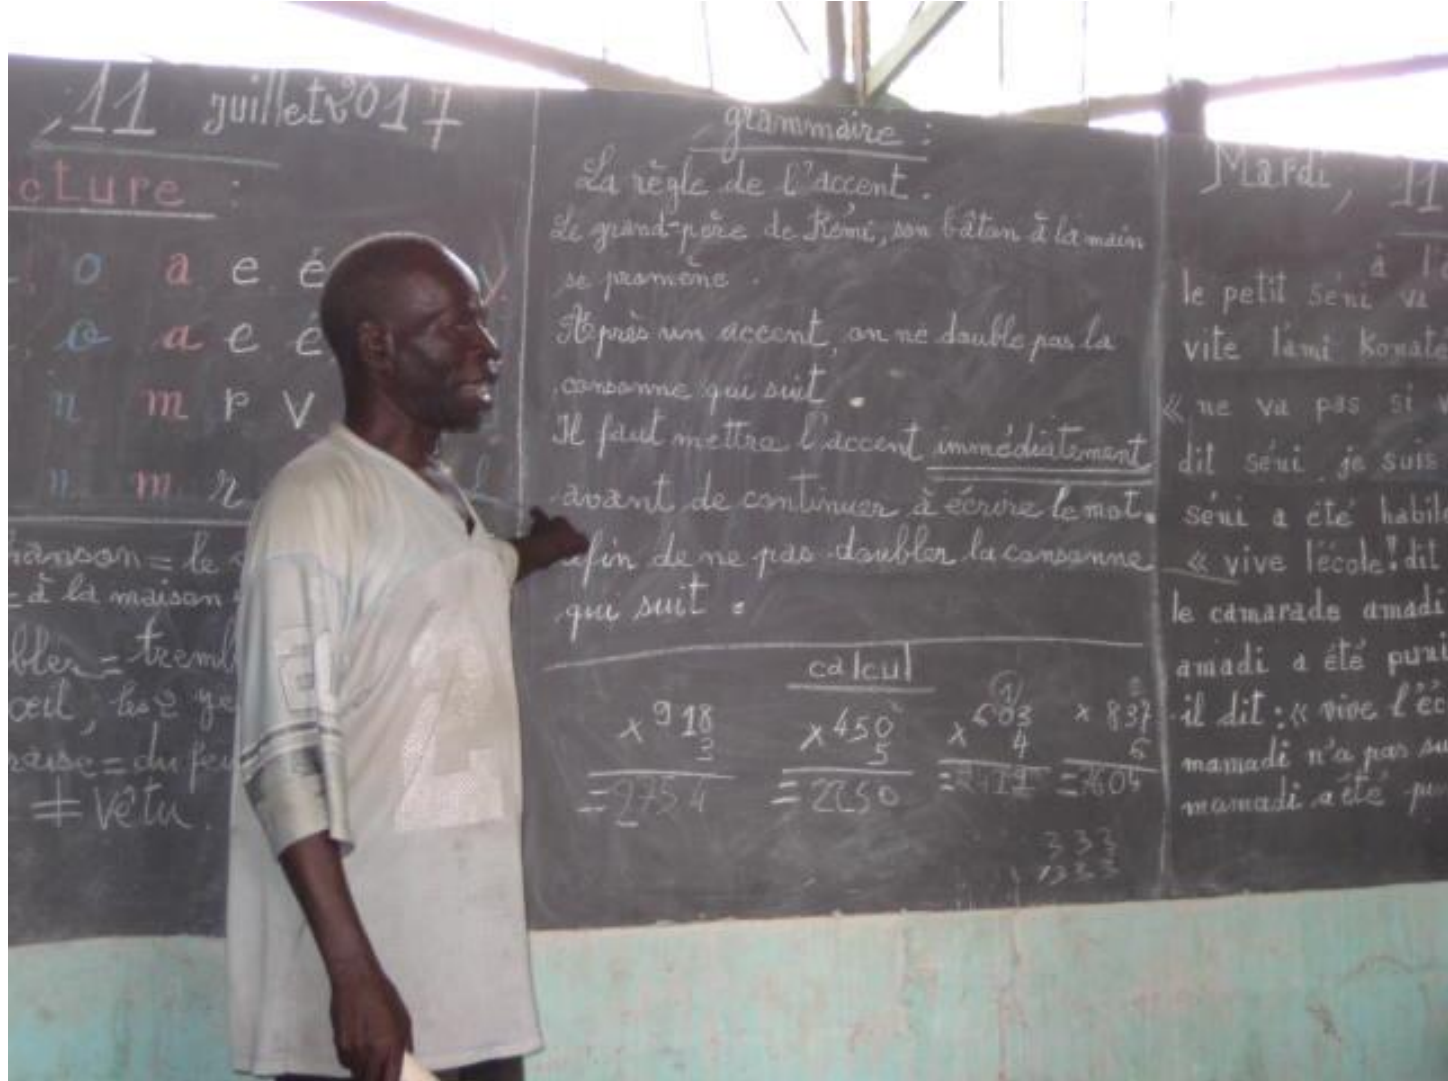 11 juillet 2017
cture :
o a e é y
o a e é
n m r v
n m r
hanson = le
à la maison
bler = trembl
œil, les 2 ye
raise = du feu
≠ vêtu.
grammaire :
La règle de l'accent.
Le grand-père de Rémi, son bâton à la main
se promène.
Après un accent, on ne double pas la
consonne qui suit.
Il faut mettre l'accent immédiatement
avant de continuer à écrire le mot.
afin de ne pas doubler la consonne
qui suit.
calcul
× 918
3
= 2754
× 450
5
= 2250
× 603
4
= 2412
× 837
333
Mardi, 11
à la
le petit séni va
vite lami Konaté
« ne va pas si v
dit séni je suis
séni a été habil
« vive l'école! dit
le camarade amadi
amadi a été puni
il dit : « vive l'éc
mamadi n'a pas su
mamadi a été pu